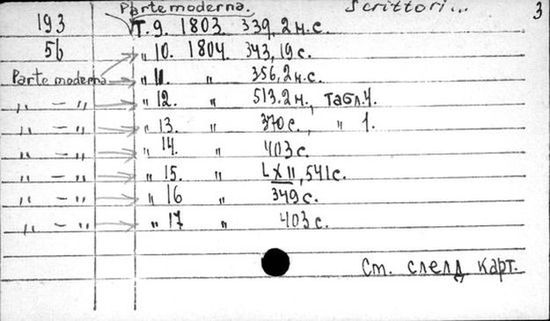 Parte moderna. Scrittori... 3
193 Т. 9. 1803. 339, 2 н.с.
5б „ 10. 1804. 343, 19 с.
Parte moderna „ 11. „ 356, 2 н.с.
„ — „ „ 12. „ 513. 2 н., табл. 4.
„ — „ „ 13. „ 370 с., „ 1.
„ — „ „ 14. „ 403 с.
„ — „ „ 15. „ LXII, 541 с.
„ — „ „ 16 „ 349 с.
„ — „ „ 17 „ 403 с.
Ст. следд карт.